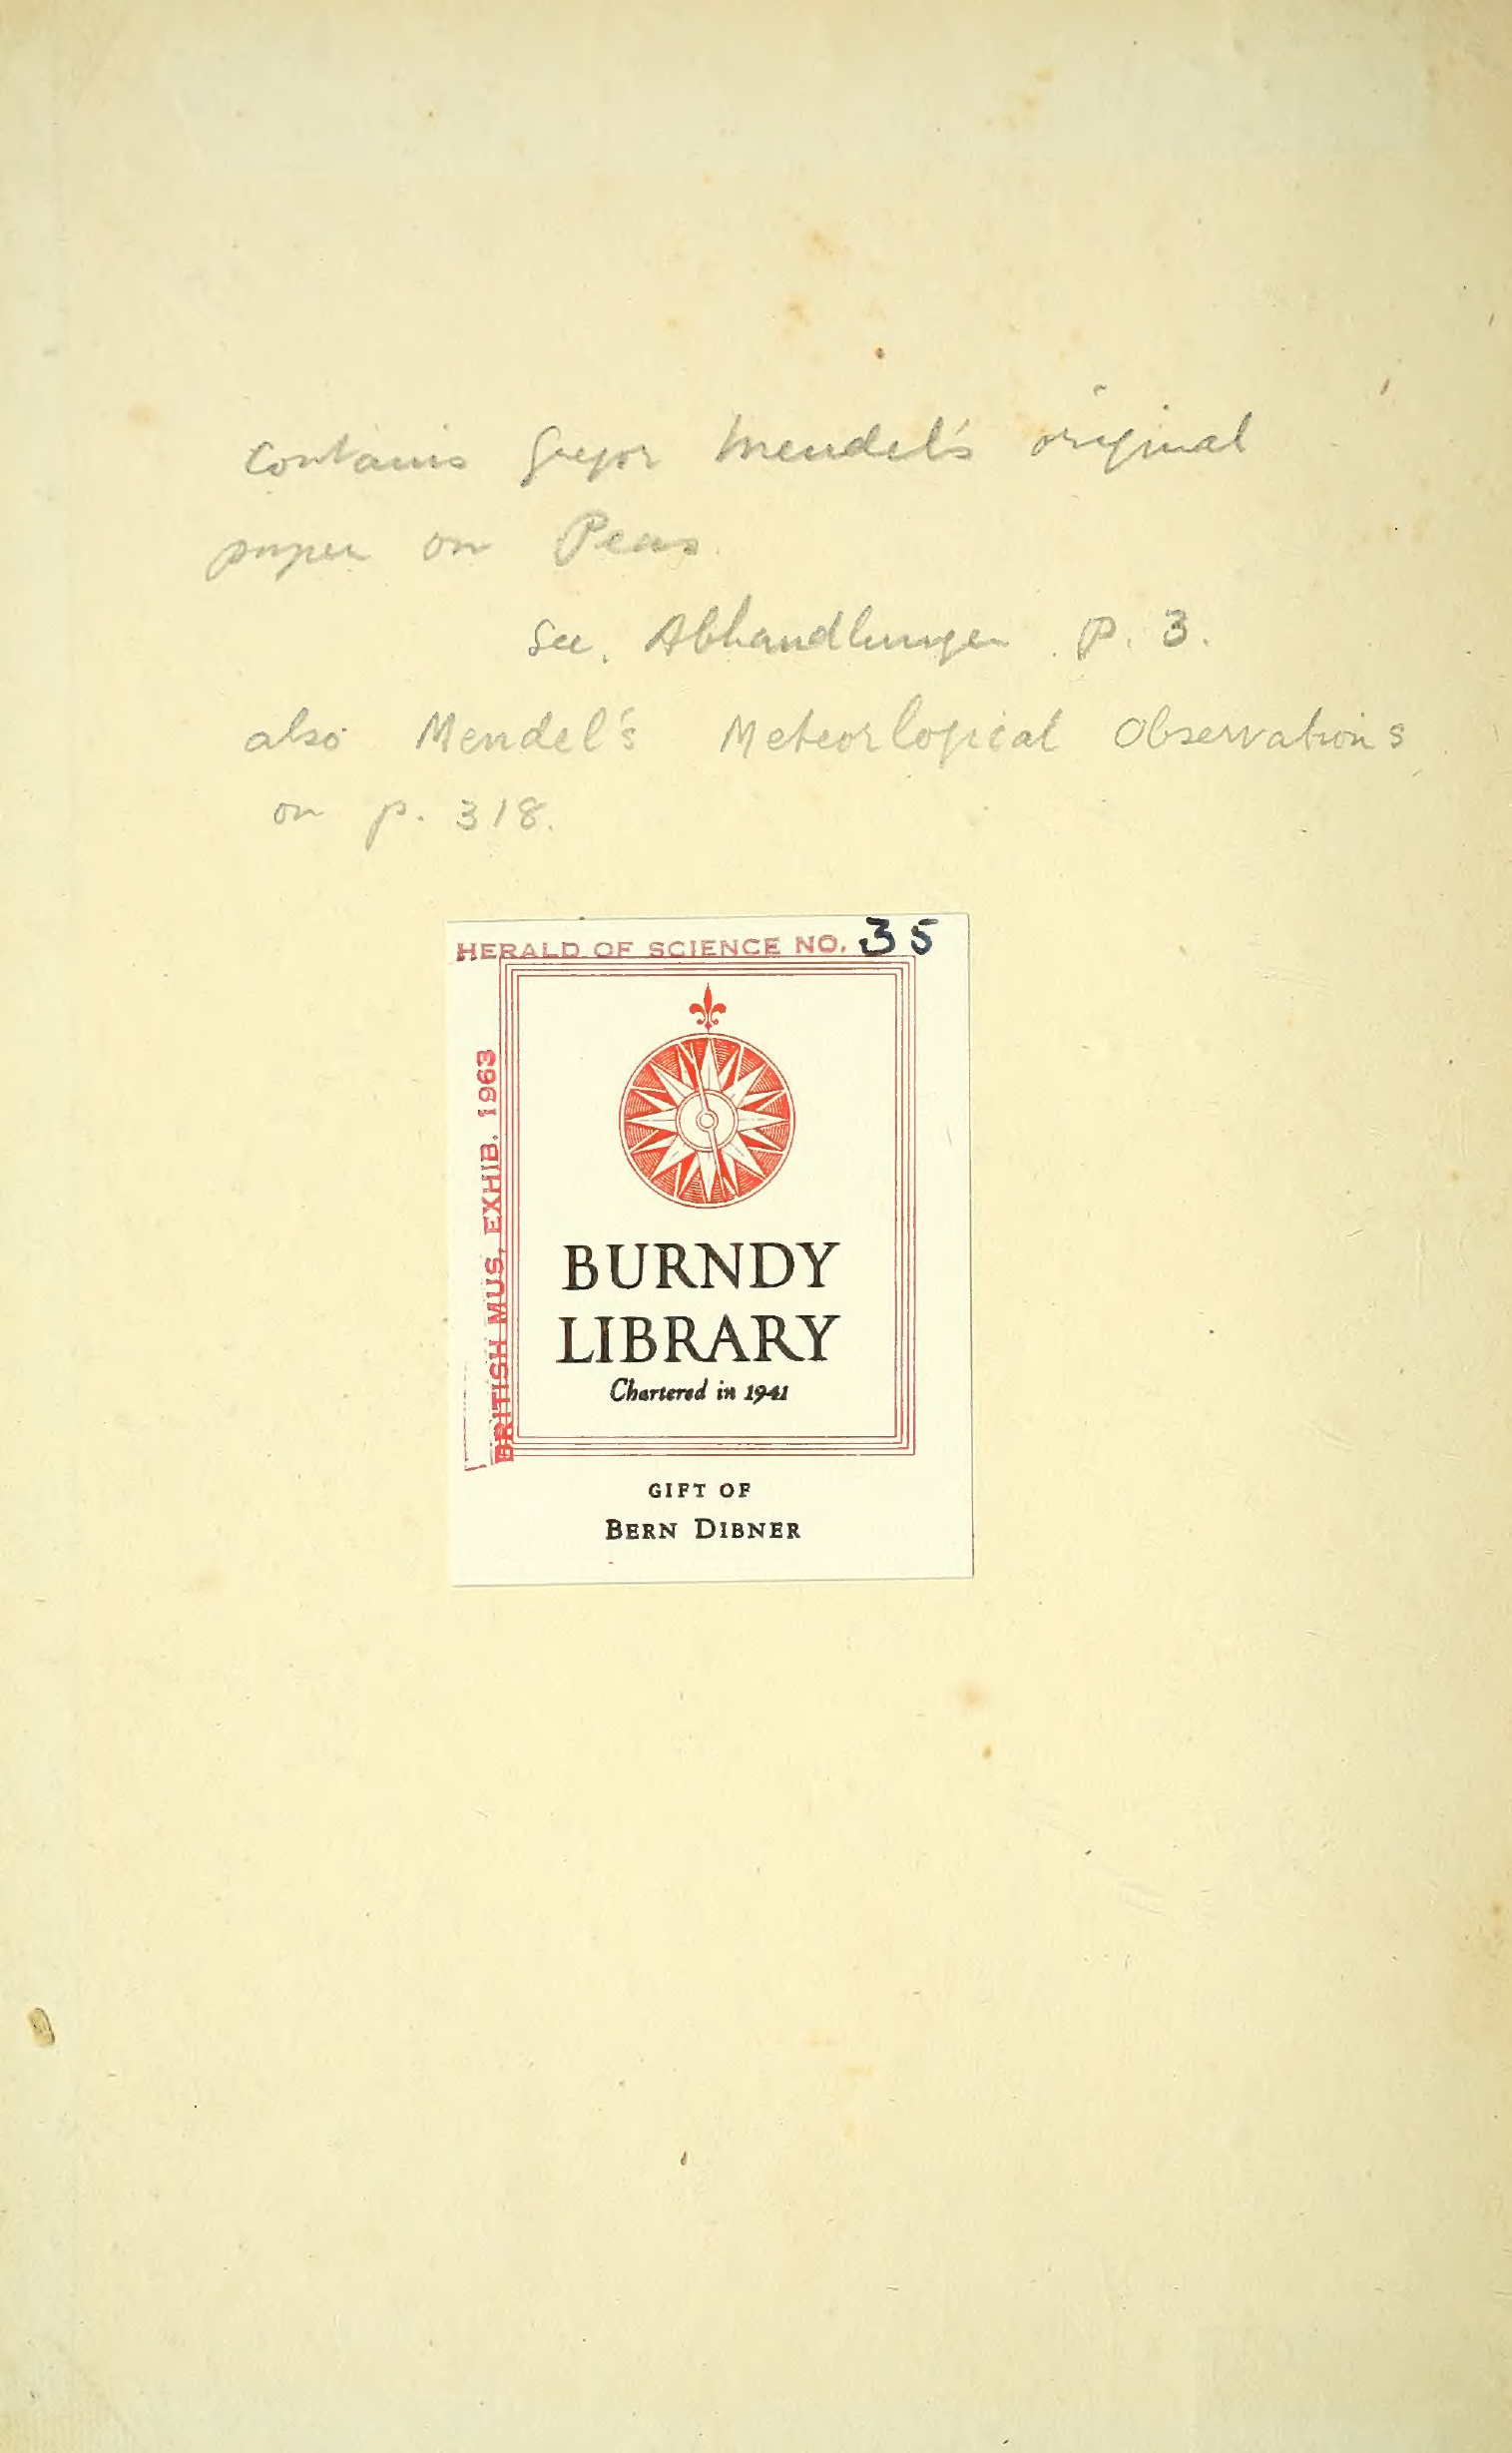 contains Gregor Mendel's original
paper on Peas.
See. Abhandlungen p. 3.
also Mendel's Meteorlogical Observations
on p. 318.
HERALD OF SCIENCE NO. 35
BRITISH MUS. EXHIB. 1963
BURNDY
LIBRARY
Chartered in 1941
GIFT OF
BERN DIBNER